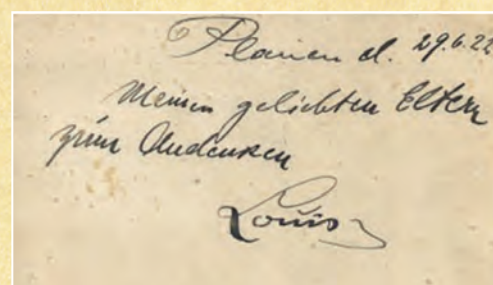 Plauen d. 29.6.22
Meinen geliebten Eltern
zum Andenken
Louis